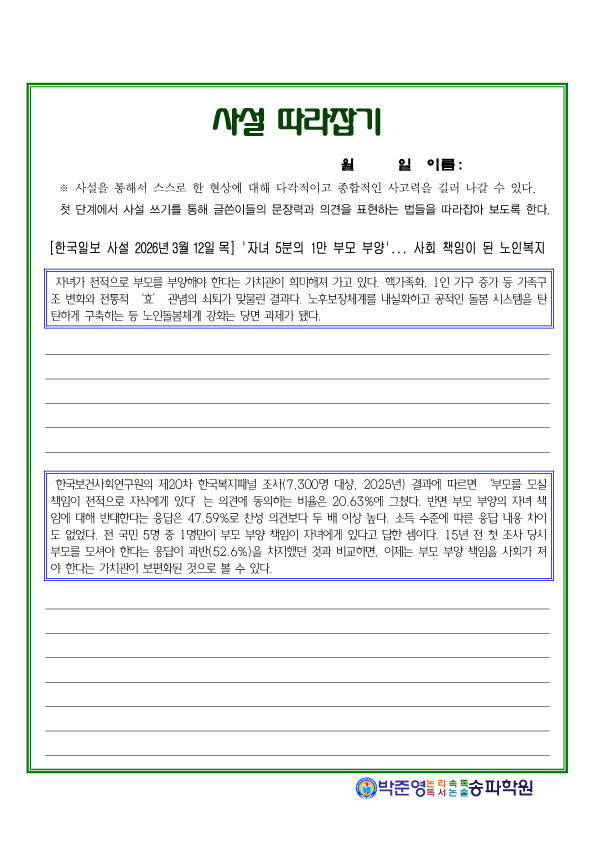 사설 따라잡기
월 일 이름:
※ 사설을 통해서 스스로 한 현상에 대해 다각적이고 종합적인 사고력을 길러 나갈 수 있다.
첫 단계에서 사설 쓰기를 통해 글쓴이들의 문장력과 의견을 표현하는 법들을 따라잡아 보도록 한다.
[한국일보 사설 2026년 3월 12일 목] '자녀 5분의 1만 부모 부양'... 사회 책임이 된 노인복지
자녀가 전적으로 부모를 부양해야 한다는 가치관이 희미해져 가고 있다. 핵가족화, 1인 가구 증가 등 가족구
조 변화와 전통적 '효' 관념의 쇠퇴가 맞물린 결과다. 노후보장체계를 내실화하고 공적인 돌봄 시스템을 탄
탄하게 구축하는 등 노인돌봄체계 강화는 당면 과제가 됐다.
한국보건사회연구원의 제20차 한국복지패널 조사(7,300명 대상, 2025년) 결과에 따르면 '부모를 모실
책임이 전적으로 자식에게 있다'는 의견에 동의하는 비율은 20.63%에 그쳤다. 반면 부모 부양의 자녀 책
임에 대해 반대한다는 응답은 47.59%로 찬성 의견보다 두 배 이상 높다. 소득 수준에 따른 응답 내용 차이
도 없었다. 전 국민 5명 중 1명만이 부모 부양 책임이 자녀에게 있다고 답한 셈이다. 15년 전 첫 조사 당시
부모를 모셔야 한다는 응답이 과반(52.6%)을 차지했던 것과 비교하면, 이제는 부모 부양 책임을 사회가 져
야 한다는 가치관이 보편화된 것으로 볼 수 있다.
박준영논리속독독서논술송파학원